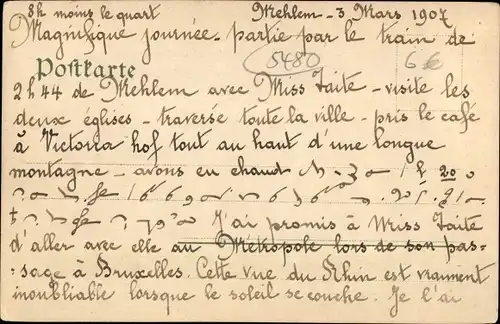 8h moins le quart
Mehlem - 3 Mars 1907
Magnifique journée - partie par le train de
5480
6€
Postkarte
2h44 de Mehlem avec Miss Taite - visité les
deux églises - traversé toute la ville - pris le café
à Victoria hof tout au haut d'une longue
montagne - avons eu chaud
J'ai promis à Miss Taite
d'aller avec elle au Métropole lors de son pas-
-sage à Bruxelles. Cette vue du Rhin est vraiment
inoubliable lorsque le soleil se couche. Je l'ai